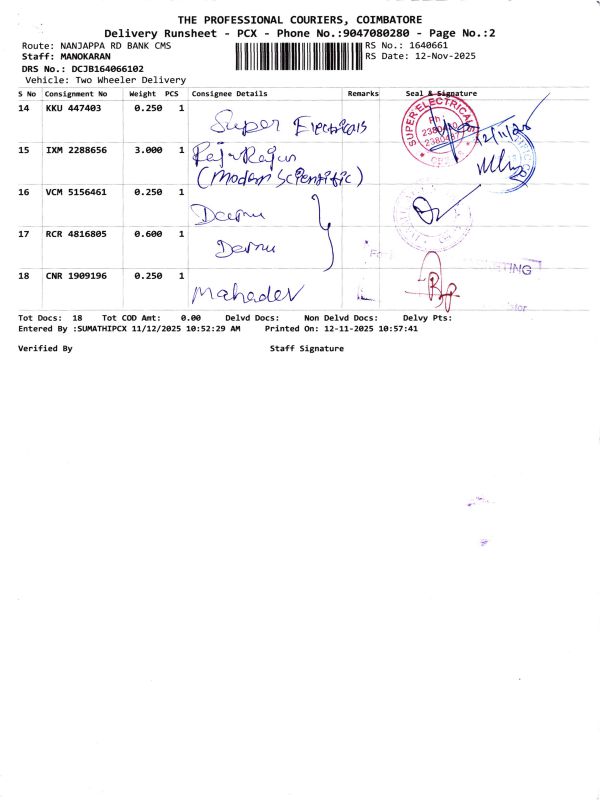 THE PROFESSIONAL COURIERS, COIMBATORE
Delivery Runsheet - PCX - Phone No.:9047080280 - Page No.:2
Route: NANJAPPA RD BANK CMS
RS No.: 1640661
Staff: MANOKARAN
RS Date: 12-Nov-2025
DRS No.: DCJB164066102
Vehicle: Two Wheeler Delivery
S No Consignment No Weight PCS Consignee Details Remarks Seal & Signature
14 KKU 447403 0.250 1 Super Electricals
SUPER ELECTRICALS
Ph :
12/11/25
15 IXM 2288656 3.000 1
(Modern Scientific)
16 VCM 5156461 0.250 1
17 RCR 4816805 0.600 1
18 CNR 1909196 0.250 1 Mahadev
Tot Docs: 18 Tot COD Amt: 0.00 Delvd Docs: Non Delvd Docs: Delvy Pts:
Entered By :SUMATHIPCX 11/12/2025 10:52:29 AM Printed On: 12-11-2025 10:57:41
Verified By Staff Signature